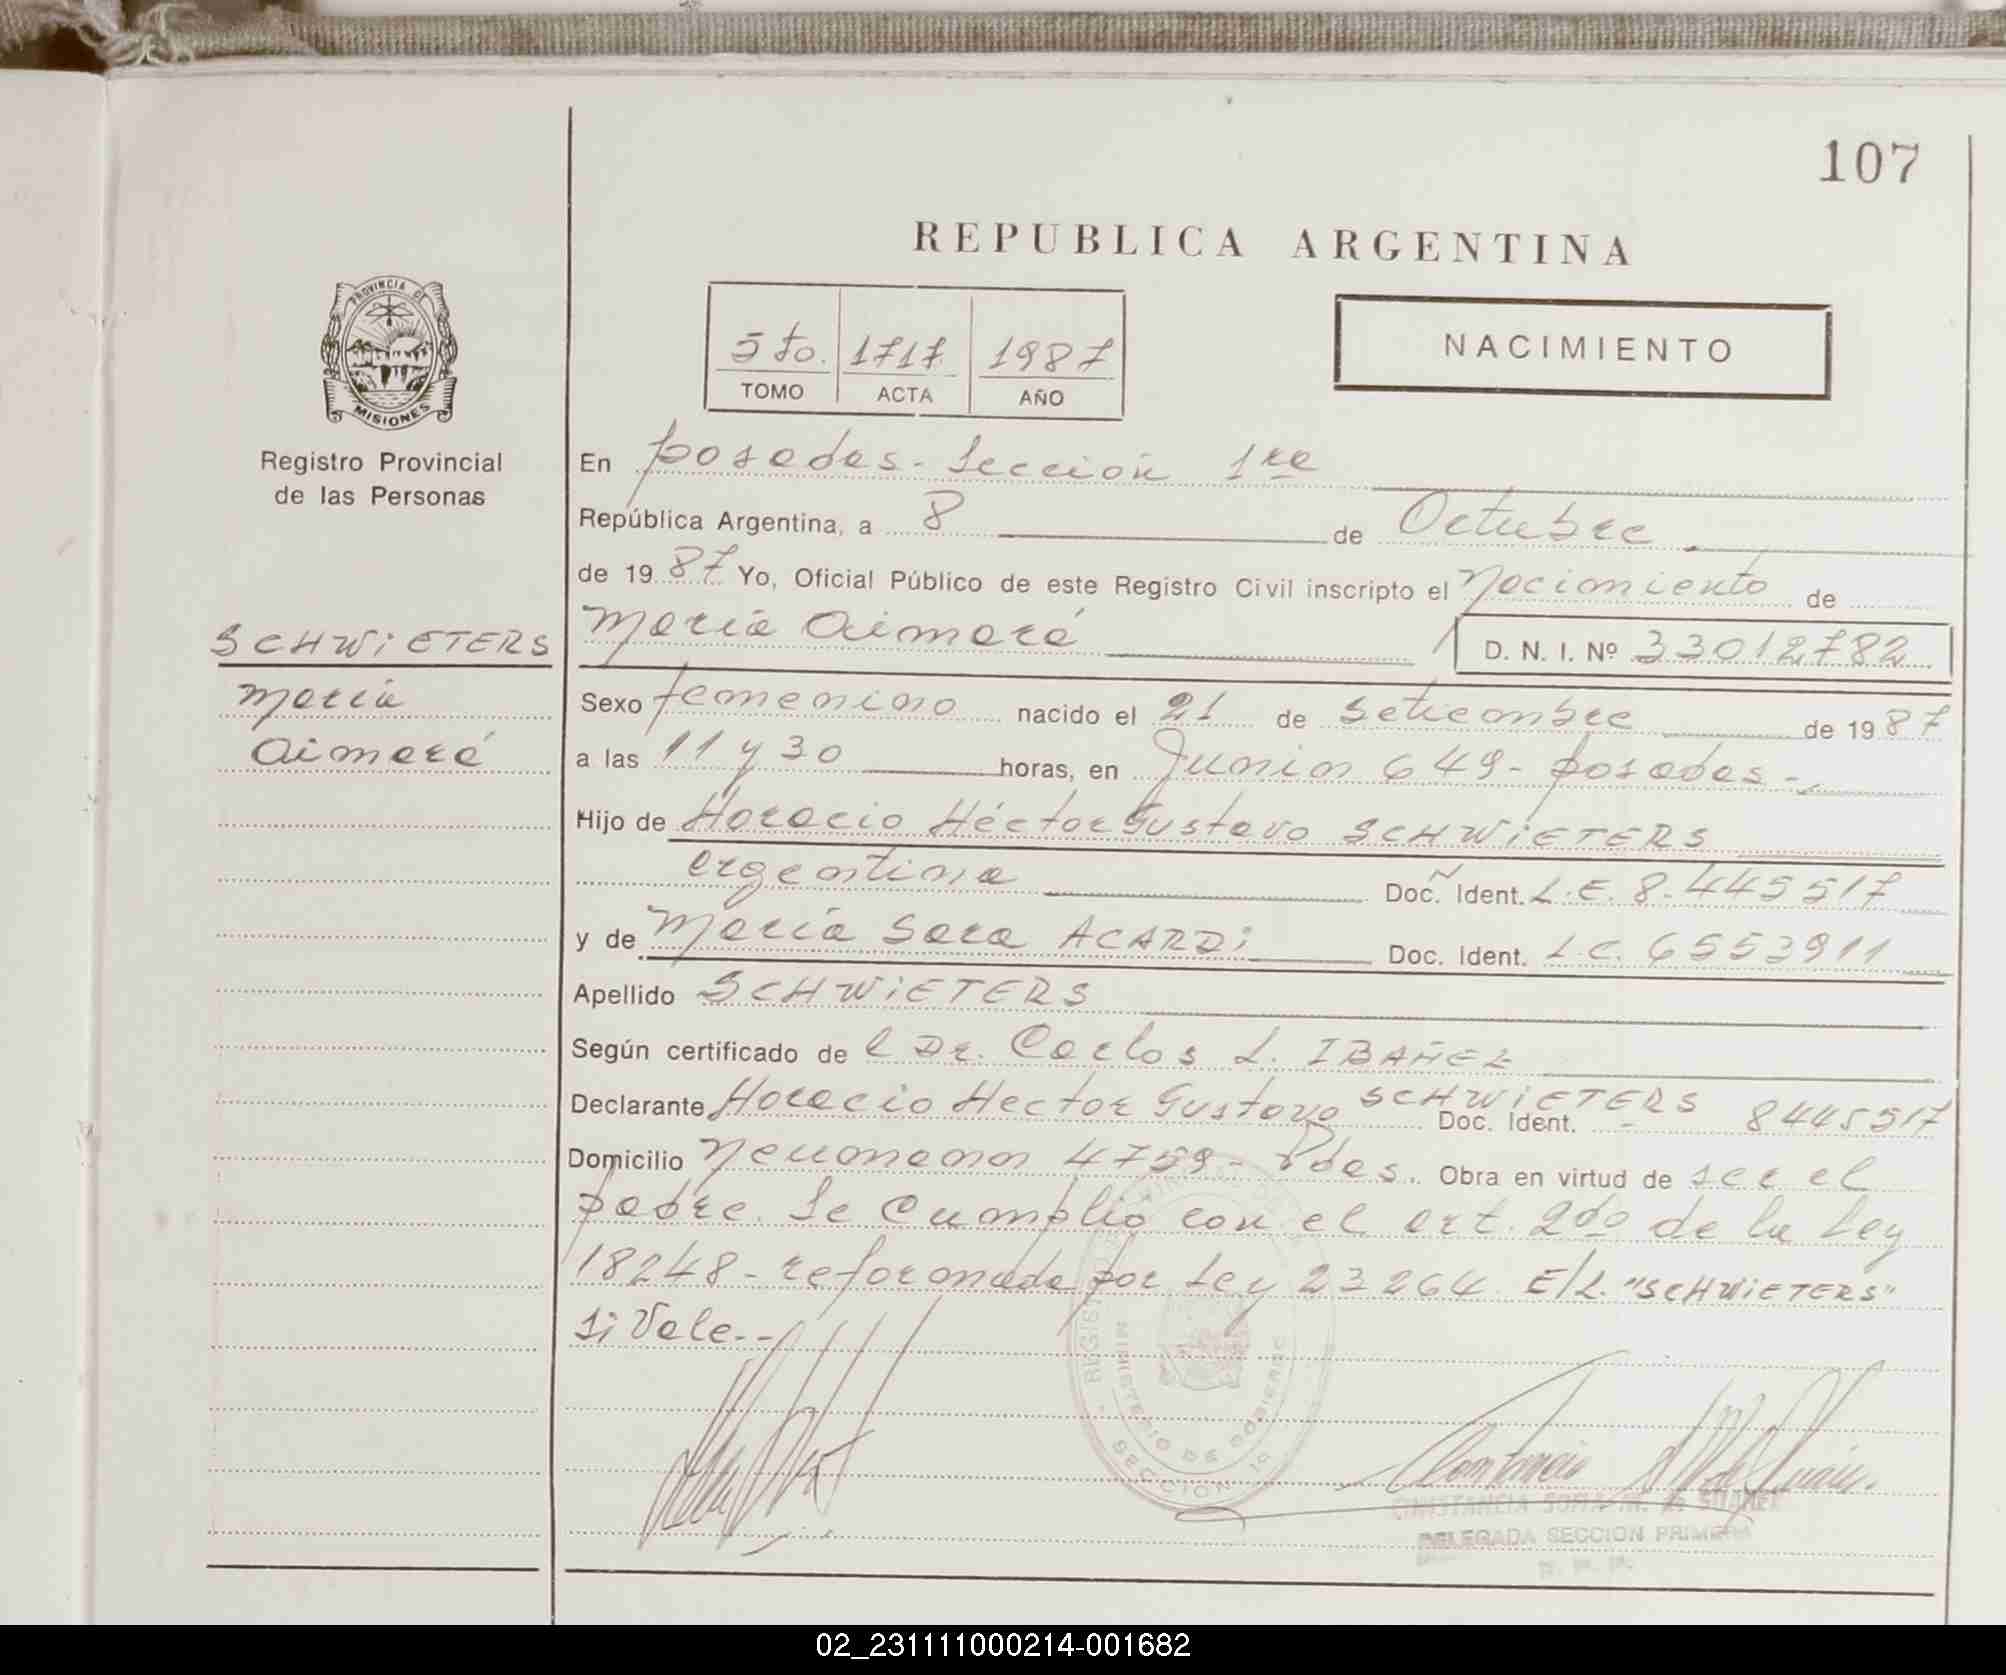 107
REPUBLICA ARGENTINA
PROVINCIA DE
MISIONES
Registro Provincial
de las Personas
5to. 1717 1987
TOMO ACTA AÑO
NACIMIENTO
En Posadas - Sección 1ra
República Argentina, a 8 de Octubre
de 1987 Yo, Oficial Público de este Registro Civil inscripto el Nacimiento de
María Aimará D. N. I. Nº 33012782
SCHWiETERS
María
Aimará
Sexo femenino nacido el 21 de Setiembre de 1987
a las 11 y 30 horas, en Junin 649 - Posadas -
Hijo de Horacio Héctor Gustavo SCHWiETERS
argentina Doc. Ident. L.E. 8.445517
y de María Sara ACARDi Doc. Ident. L.C. 6553911
Apellido SCHWiETERS
Según certificado de l Dr. Carlos L. IBAÑEZ
Declarante Horacio Hector Gustavo SCHWiETERS Doc. Ident. - 8445517
Domicilio Neumann 4759 - Pdas. Obra en virtud de ser el
padre. Se Cumplió con el art. 2do de la Ley
18248 - reformada por Ley 23264. E/L. "SCHWiETERS"
Si Vale.--
REGIST
MINISTERIO DE GOBIERNO
SECCION 1º
CONSTANCIA SOFIA M. de SUAREZ
DELEGADA SECCION PRIMERA
02_231111000214-001682